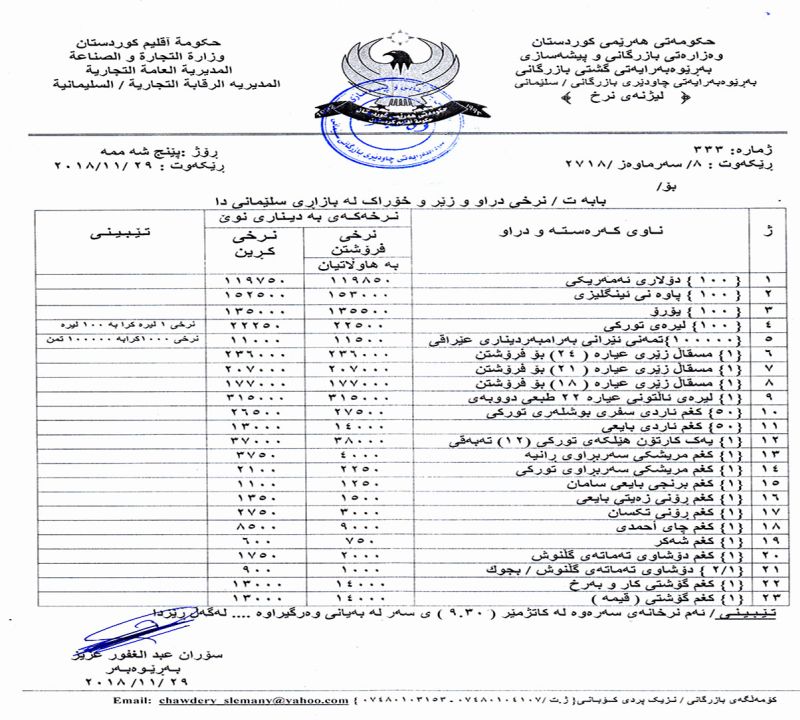 حکومەتی هەرێمی کوردستان
وەزارەتی بازرگانی و پیشەسازی
بەڕێوەبەرایەتی گشتی بازرگانی
بەڕێوەبەرایەتی چاودێری بازرگانی / سلێمانی
﴿ لیژنەی نرخ ﴾
حكومة أقليم كوردستان
وزارة التجارة و الصناعة
المديرية العامة التجارية
المديريه الرقابة التجارية / السليمانية
ژمارە: ٣٣٣
ڕێکەوت : ٨/ سەرماوەز /٢٧١٨
ڕۆژ :پێنج شه ممه
ڕێکەوت : ٢٩ /٢٠١٨/١١
بۆ/
بابه ت / نرخی دراو و زێڕ و خۆراک له بازاڕی سلێمانی دا
ژ ناوی کەرەستە و دراو نرخەکەی به دیناری نوێ تێبینی
نرخی فرۆشتن به هاوڵاتیان نرخی کڕین
١ {١٠٠} دۆلاری ئەمەریکی ١١٩٨٥٠ ١١٩٧٥٠
٢ {١٠٠} پاوه نی ئینگلیزی ١٥٣٠٠٠ ١٥٢٥٠٠
٣ {١٠٠} یۆرۆ ١٣٥٥٠٠ ١٣٥٠٠٠
٤ {١٠٠} لیرەی تورکی ٢٢٥٠٠ ٢٢٢٥٠ نرخی ١ لیره کرا به ١٠٠ لیره
٥ {١٠٠٠٠٠}تمەنی ئێرانی بەرامبەردیناری عێراقی ١١٥٠٠ ١١٠٠٠ نرخی ١٠٠٠کرابه ١٠٠٠٠٠ تمن
٦ {١} مسقاڵ زێڕی عیاره ( ٢٤) بۆ فرۆشتن ٢٣٦٠٠٠ ٢٣٦٠٠٠
٧ {١} مسقاڵ زێڕی عیاره ( ٢١) بۆ فرۆشتن ٢٠٧٠٠٠ ٢٠٧٠٠٠
٨ {١} مسقاڵ زێڕی عیاره ( ١٨) بۆ فرۆشتن ١٧٧٠٠٠ ١٧٧٠٠٠
٩ {١} لیرەی ئاڵتونی عیاره ٢٢ طبعی دووبەی ٣١٥٠٠٠ ٣١٥٠٠٠
١٠ {٥٠} کغم ئاردی سفری بوشلەری تورکی ٢٧٥٠٠ ٢٦٥٠٠
١١ {٥٠} کغم ئاردی بایعی ١٤٠٠٠ ١٣٠٠٠
١٢ {١} یەک کارتۆن هێلکەی تورکی (١٢) تەبەقی ٣٨٠٠٠ ٣٧٠٠٠
١٣ {١} کغم مریشکی سەربڕاوی ڕانیه ٤٠٠٠ ٣٧٥٠
١٤ {١} کغم مریشکی سەربڕاوی تورکی ٢٢٥٠ ٢١٠٠
١٥ {١} کغم برنجی بایعی سامان ١٢٥٠ ١١٠٠
١٦ {١} کغم ڕۆنی زەیتی بایعی ١٥٠٠ ١٣٥٠
١٧ {١} کغم ڕۆنی تکسان ٣٠٠٠ ٢٧٥٠
١٨ {١} کغم چای أحمدی ٩٠٠٠ ٨٥٠٠
١٩ {١} کغم شەکر ٧٥٠ ٦٠٠
٢٠ {١} کغم دۆشاوی تەماتەی گڵنوش ٢٠٠٠ ١٧٥٠
٢١ {٢/١ } دۆشاوی تەماتەی گڵنوش / بچوك ١٠٠٠ ٩٠٠
٢٢ {١} کغم گۆشتی کار و بەرخ ١٤٠٠٠ ١٣٠٠٠
٢٣ {١} کغم گۆشتی ( قیمه ) ١٤٠٠٠ ١٣٠٠٠
تێبینی / ئەم نرخانەی سەرەوه له کاتژمێر ( ٩.٣٠ ) ی سەر له بەیانی وەرگیراوه .... لەگەڵ ڕێزدا
سۆران عبد الغفور عزيز
بەڕێوەبەر
٢٠١٨/١١/٢٩
کۆمەڵگەی بازرگانی / نزیک پردی کۆبانی{ ژ.ت /٠٧٤٨٠١٠٤١٠٧ - ٠٧٤٨٠١٠٣١٥٣ } Email: chawdery_slemany@yahoo.com